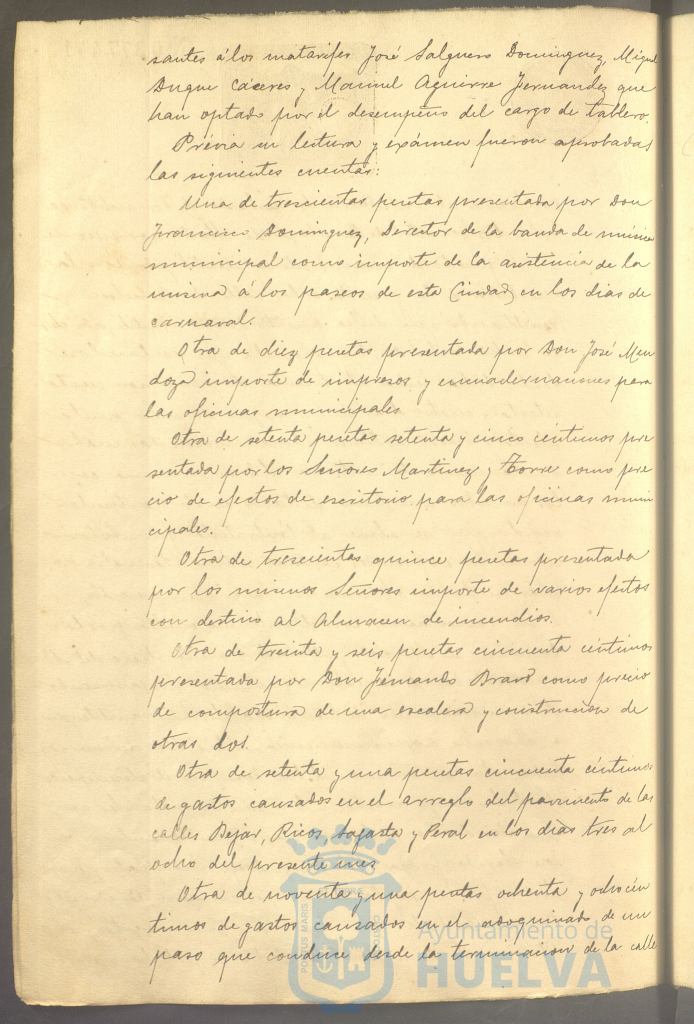 santes á los matarifes José Salguero Dominguez, Miguel
Duque Cáceres y Manuel Aguirre Fernandez que
han optado por el desempeño del cargo de tablero.
Prévia su lectura y exámen fueron aprobadas
las siguientes cuentas:
Una de trescientas pesetas presentada por Don
Francisco Dominguez, Director de la banda de música
municipal como importe de la asistencia de la
misma á los paseos de esta Ciudad en los dias de
carnaval.
Otra de diez pesetas presentada por Don José Men
doza importe de impresos y encuadernaciones para
las oficinas municipales
Otra de setenta pesetas setenta y cinco céntimos pre
sentada por los Señores Martinez y Torre como pre
cio de efectos de escritorio para las oficinas muni
cipales.
Otra de trescientas quince pesetas presentada
por los mismos Señores importe de varios efectos
con destino al Almacen de incendios.
Otra de treinta y seis pesetas cincuenta céntimos
presentada por Don Fernando Bravo como precio
de compostura de una escalera y construcion de
otras dos.
Otra de setenta y una pesetas cincuenta céntimos
de gastos causados en el arreglo del pavimento de las
calles Bejar, Ricos, Sagasta y Peral en los dias tres al
ocho del presente mes
Otra de noventa y una pesetas ochenta y ocho cén
timos de gastos causados en el adoquinado de un
paso que conduce desde la terminacion de la calle
PORTUS MARIS
Ayuntamiento de
HUELVA